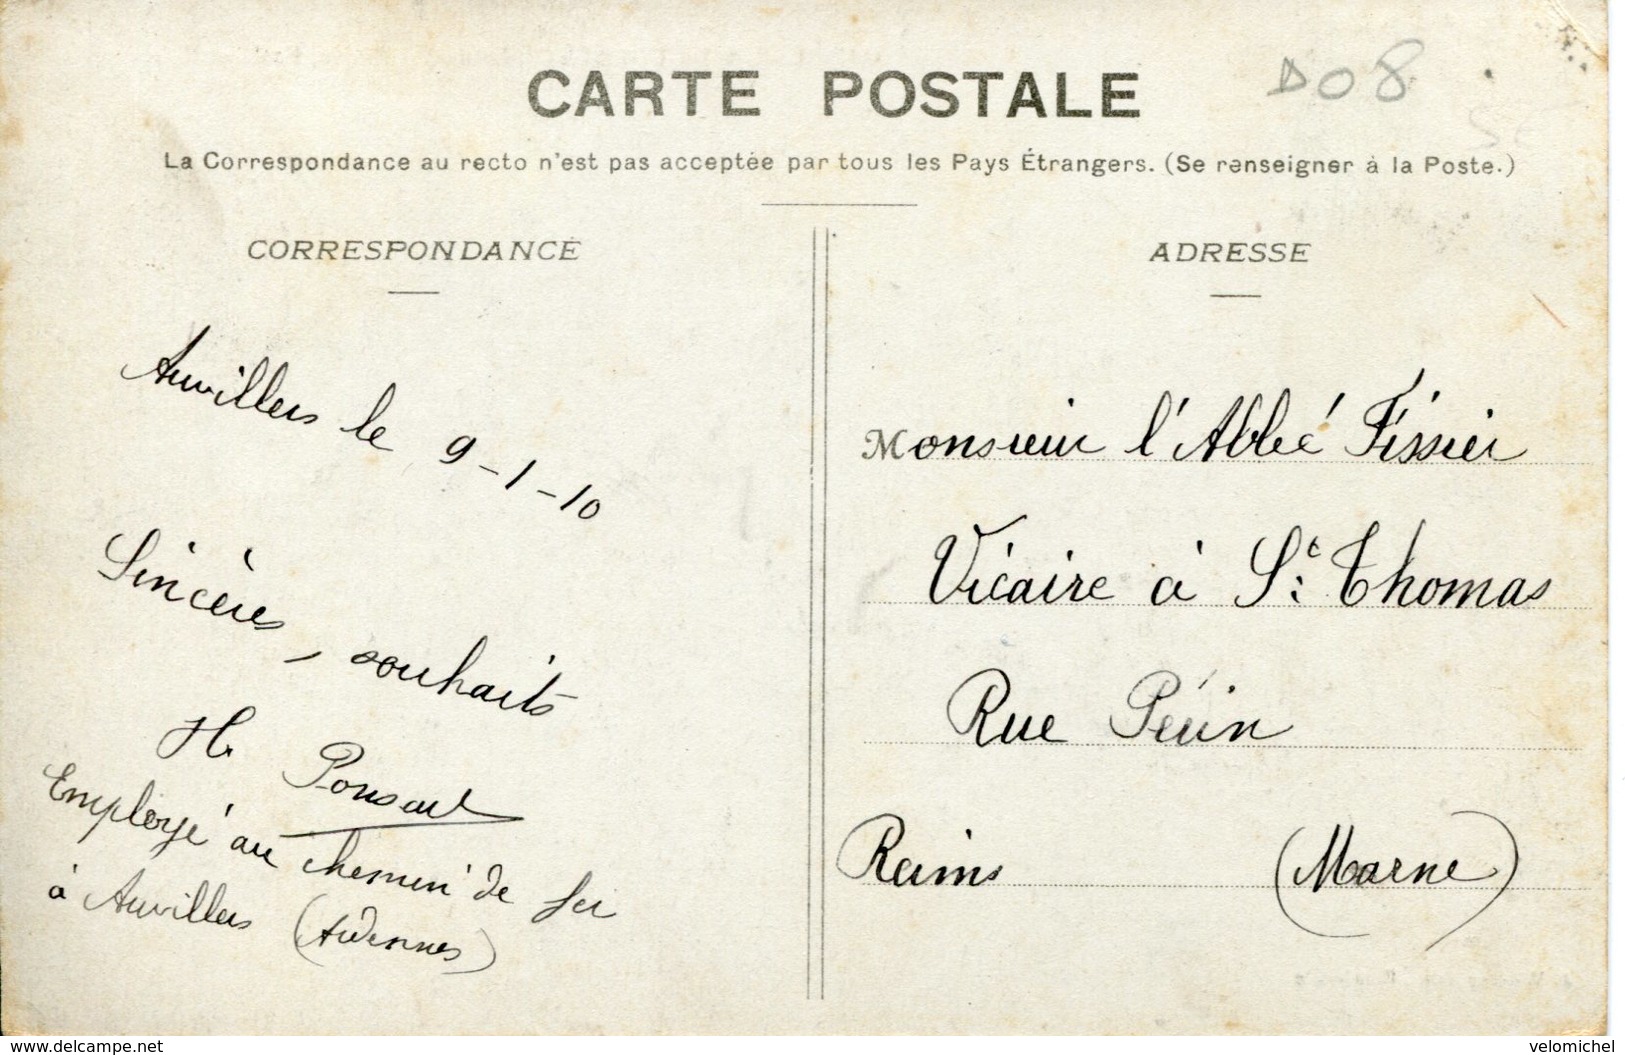 CARTE POSTALE
D08
La Correspondance au recto n'est pas acceptée par tous les Pays Étrangers. (Se renseigner à la Poste.)
CORRESPONDANCE
Auvillers le 9-1-10
Sincères, souhaits
H. Ponsart
Employé au chemin de fer
à Auvillers (Ardennes)
ADRESSE
Monsieur l'Abbé Fissier
Vicaire à St. Thomas
Rue Périn
Reims (Marne)
www.delcampe.net
velomichel